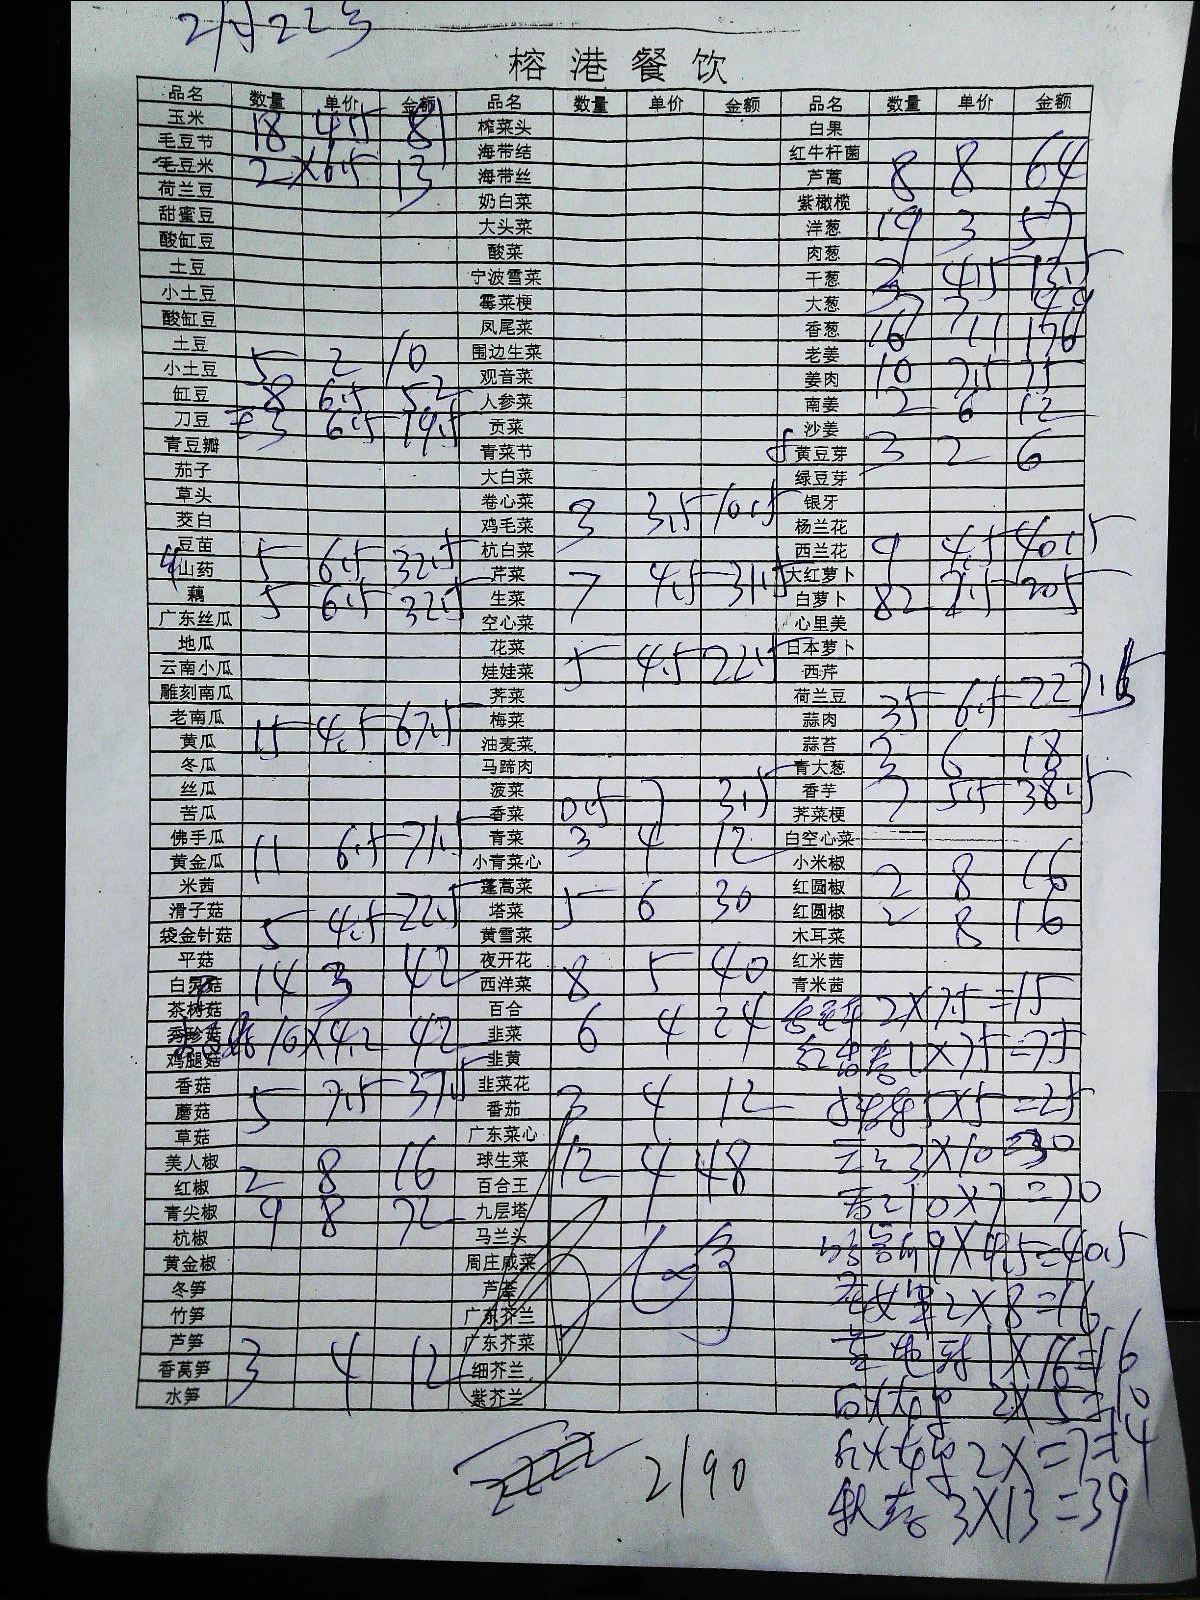 2月22号
榕港餐饮
品名 数量 单价 金额 品名 数量 单价 金额 品名 数量 单价 金额
玉米 18 4.5 81 榨菜头 白果
毛豆节 海带结 红牛杆菌
毛豆米 2×6.5 13 海带丝 芦蒿 8 8 64
荷兰豆 奶白菜 紫橄榄
甜蜜豆 大头菜 洋葱 19 3 57
酸缸豆 酸菜 肉葱
土豆 宁波雪菜 干葱 3 4.5 13.5
小土豆 霉菜梗 大葱 7 7 49
酸缸豆 凤尾菜 香葱 16 11 176
土豆 围边生菜 老姜
小土豆 5 2 10 观音菜 姜肉 10 7.5 75
缸豆 8 6.5 52 人参菜 南姜 2 6 12
刀豆 3 6.5 19.5 贡菜 沙姜
青豆瓣 青菜节 黄豆芽 3 2 6
茄子 大白菜 绿豆芽
草头 卷心菜 银牙
茭白 鸡毛菜 3 3.5 10.5 杨兰花
豆苗 杭白菜 西兰花 9 4.5 40.5
山药 5 6.5 32.5 芹菜 7 4.5 31.5 大红萝卜
藕 5 6.5 32.5 生菜 白萝卜 82 2.5 205
广东丝瓜 空心菜 心里美
地瓜 花菜 日本萝卜
云南小瓜 娃娃菜 5 4.5 22.5 西芹
雕刻南瓜 荠菜 荷兰豆
老南瓜 梅菜 蒜肉 35 6.5 227.5
黄瓜 15 4.5 67.5 油麦菜 蒜苔 3 6 18
冬瓜 马蹄肉 青大葱
丝瓜 菠菜 香芋 7 5.5 38.5
苦瓜 香菜 0.5 7 3.5 荠菜梗
佛手瓜 青菜 3 4 12 白空心菜
黄金瓜 11 6.5 71.5 小青菜心 小米椒
米茜 蓬蒿菜 红圆椒 2 8 16
滑子菇 塔菜 5 6 30 红圆椒 2 8 16
袋金针菇 5 4.5 22.5 黄雪菜 木耳菜
平菇 夜开花 红米茜
白灵菇 14 3 42 西洋菜 8 5 40 青米茜
茶树菇 百合 2×7.5=15
秀珍菇 10×4.2 42 韭菜 6 4 24
鸡腿菇 韭黄 1×75=75
香菇 韭菜花
蘑菇 5 7.5 37.5 番茄 3 4 12 5×5=25
草菇 广东菜心
美人椒 球生菜 12 4 48 3×10=30
红椒 2 8 16 百合王
青尖椒 9 8 72 九层塔 10×7=70
杭椒 马兰头
黄金椒 周庄咸菜 9×4.5=40.5
冬笋 芦荟 2×8=16
竹笋 广东芥兰
芦笋 广东芥菜 1×16=16
香莴笋 3 4 12 细芥兰
水笋 紫芥兰 2×5=10
2×=7=14
3×13=39
2190